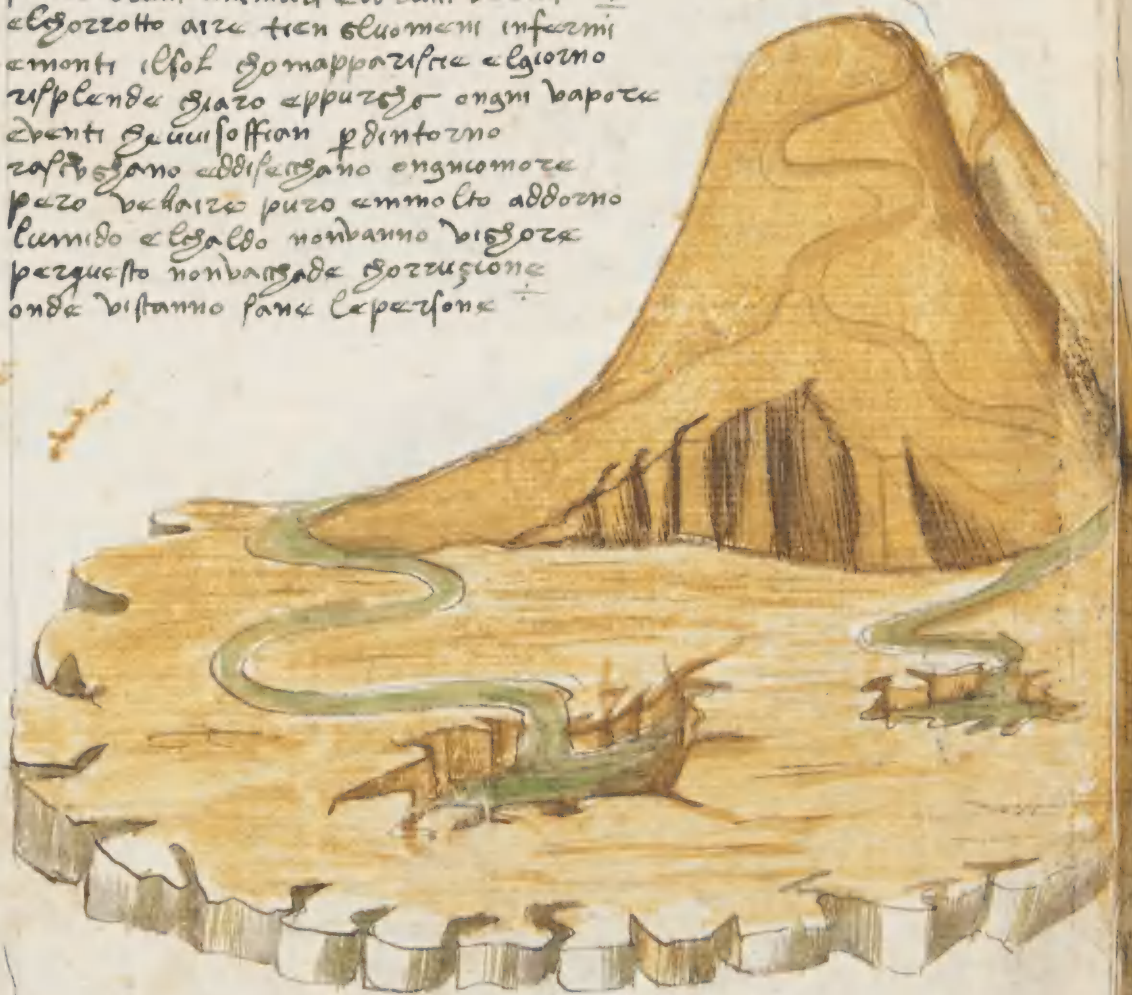 elchorrotto aire tien gluomeni infermi
emonti ilsol chomappariscie elgiorno
risplende chiaro eppurgha ongni vapore
eventi chevvisoffian p dintorno
rasciughano eddisecchano ongniomore
pero velaire puro emmolto addorno
lumido elchaldo nonvanno vighore
perquesto nonvacchade chorruçione
onde vistanno sane lepersone